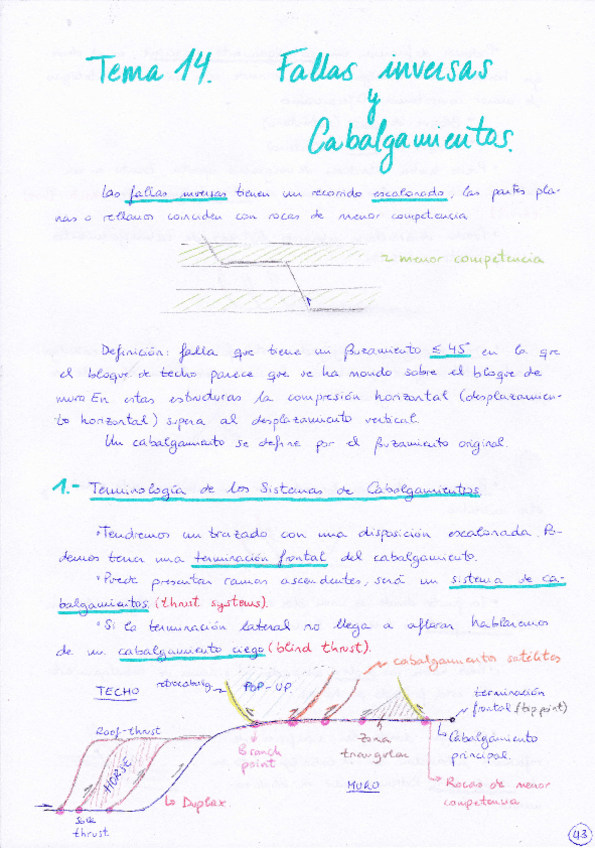 Tema 14. Fallas inversas
y
Cabalgamientos.
Las fallas inversas tienen un recorrido escalonado, las partes pla-
nas o rellanos coinciden con rocas de menor competencia
menor competencia
Definición: falla que tiene un buzamiento ≤ 45° en la que
el bloque de techo parece que se ha movido sobre el bloque de
muro. En estas estructuras la compresión horizontal (desplazamien-
to horizontal) supera al desplazamiento vertical.
Un cabalgamiento se define por el buzamiento original.
1.- Terminología de los Sistemas de Cabalgamientos.
• Tendremos un trazado con una disposición escalonada. Po-
demos tener una terminación frontal del cabalgamiento.
• Puede presentar ramas ascendentes, será un sistema de ca-
balgamientos (thrust systems).
• Si la terminación lateral no llega a aflorar hablaremos
de un cabalgamiento ciego (blind thrust).
cabalgamientos satélites
TECHO
POP-UP
terminación
frontal (tip point)
Roof-thrust
Branch
point
Zona
triangular
Cabalgamiento
principal
HORSE
MURO
Rocas de menor
competencia
Duplex.
thrust
43